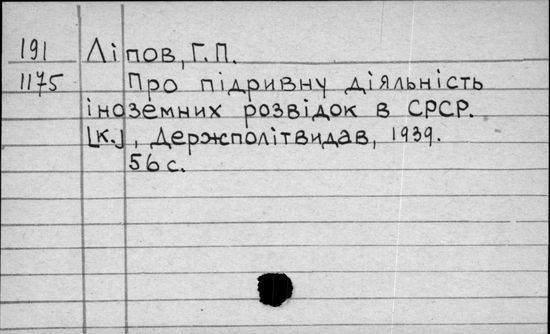 191 Ліпов, Г.П.
1175 Про підривну діяльність
іноземних розвідок в СРСР.
[к.], Держполітвидав, 1939.
56 с.